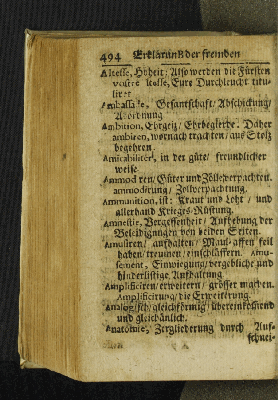 494 Erklärung der fremden
Altesse, Hoheit; Also werden die Fürsten
vostre Altesse, Eure Durchleucht titu-
liret
Ambassade, Gesantschaft/ Abschickung/
Abordnung
Ambition, Ehrgeiz/ Ehrbegierde. Daher
ambiren, wornach trachten/ aus Stolz
begehren.
Amicabilitèr, in der güte/ freundlicher
weise
Ammodiren/ Güter und Zölle verpachten.
ammodirung/ Zolverpachtung.
Ammunition, ist: Kraut und Loht/ und
allerhand Krieges-Rüstung.
Amnestie, Vergessenheit/ Aufhebung der
Beleidigungen von beiden Seiten.
Amusiren/ aufhalten/ Maul-affen feil
haben/ einschläffern. Amu-
sement, Einwiegung/ vergebliche und
hinderlistige Aufhaltung
Amplificiren/ erweitern/ grösser machen.
Amplificirung/ die Erweiterung.
Analogisch/ gleichförmig/ übereinkommend
und gleichänlich.
Anatomie, Zergliederung durch Auf-
schnei-